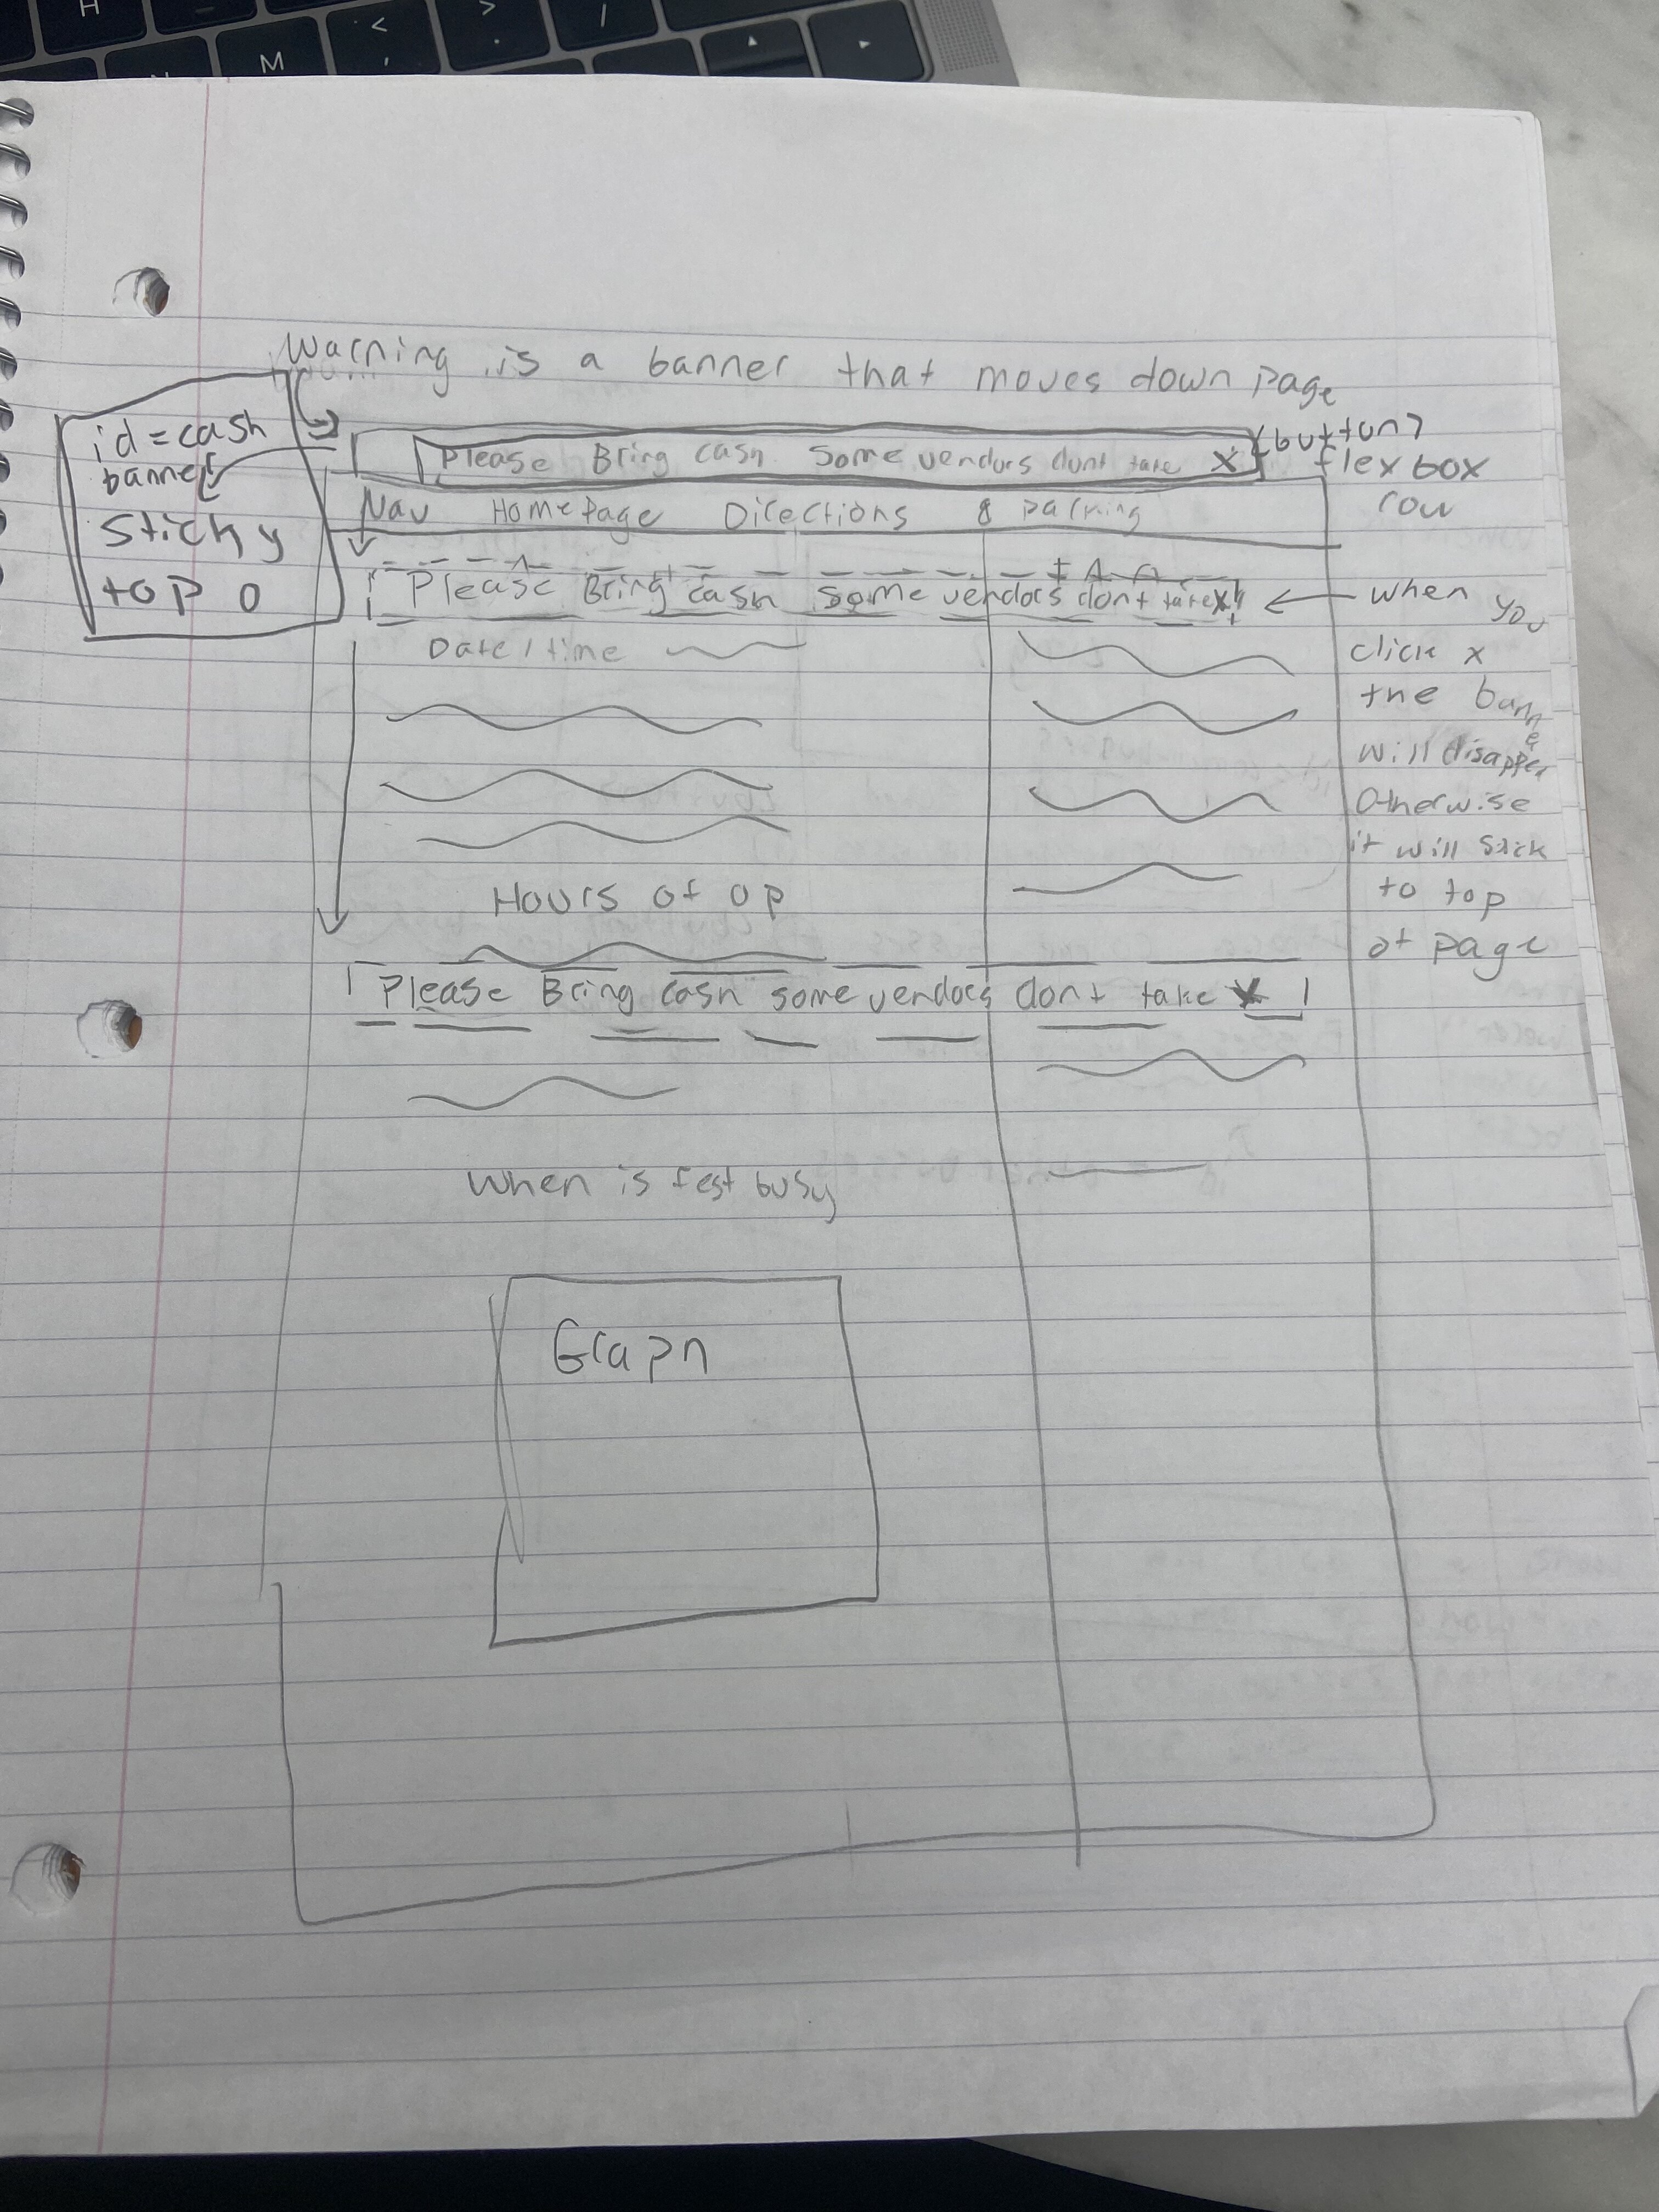 H
M
<
,
>
.
/
Warning is a banner that moves down page
id = cash
banner
sticky
top 0
Please Bring cash Some vendors dont take X
<button>
flexbox
row
Nav HomePage Directions & parking
Please Bring cash Some vendors dont take X
when you
click x
the banne
will disappea
Otherwise
it will stick
to top
of page
Date/time
Hours of op
Please Bring cash some vendors dont take X
when is fest busy
Graph